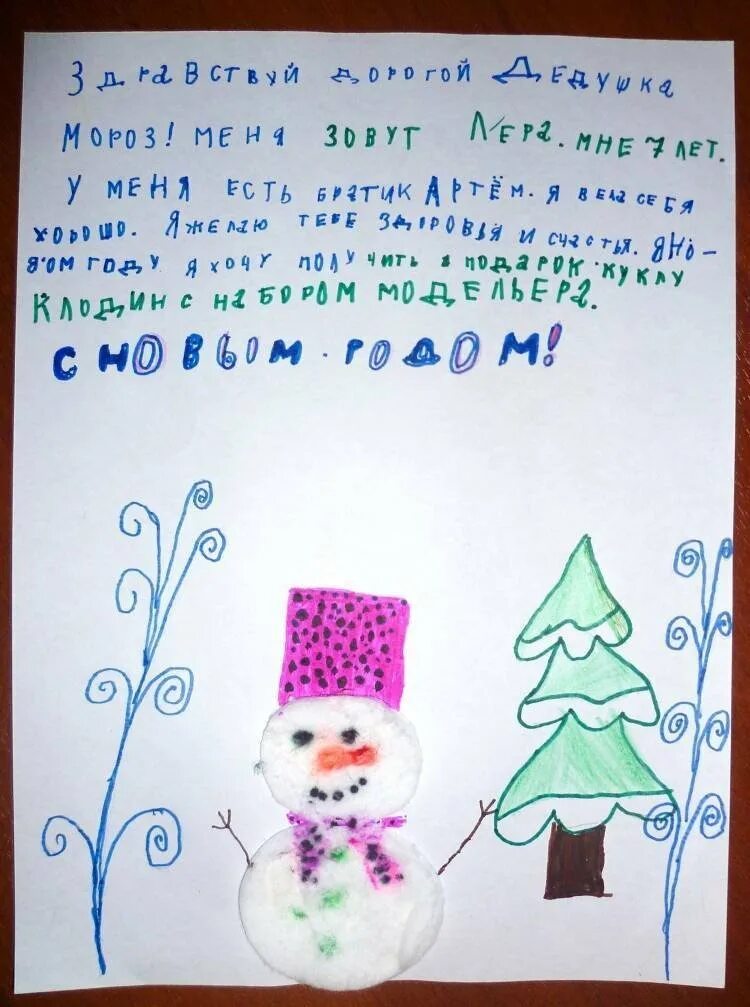 Здравствуй дорогой Дедушка
Мороз! Меня зовут Лера. Мне 7 лет.
У меня есть братик Артём. Я вела себя
хорошо. Я желаю тебе здоровья и счастья. Я но-
в'ом году я хочу получить в подарок куклу
Клодин с набором модельера.
С новым годом!